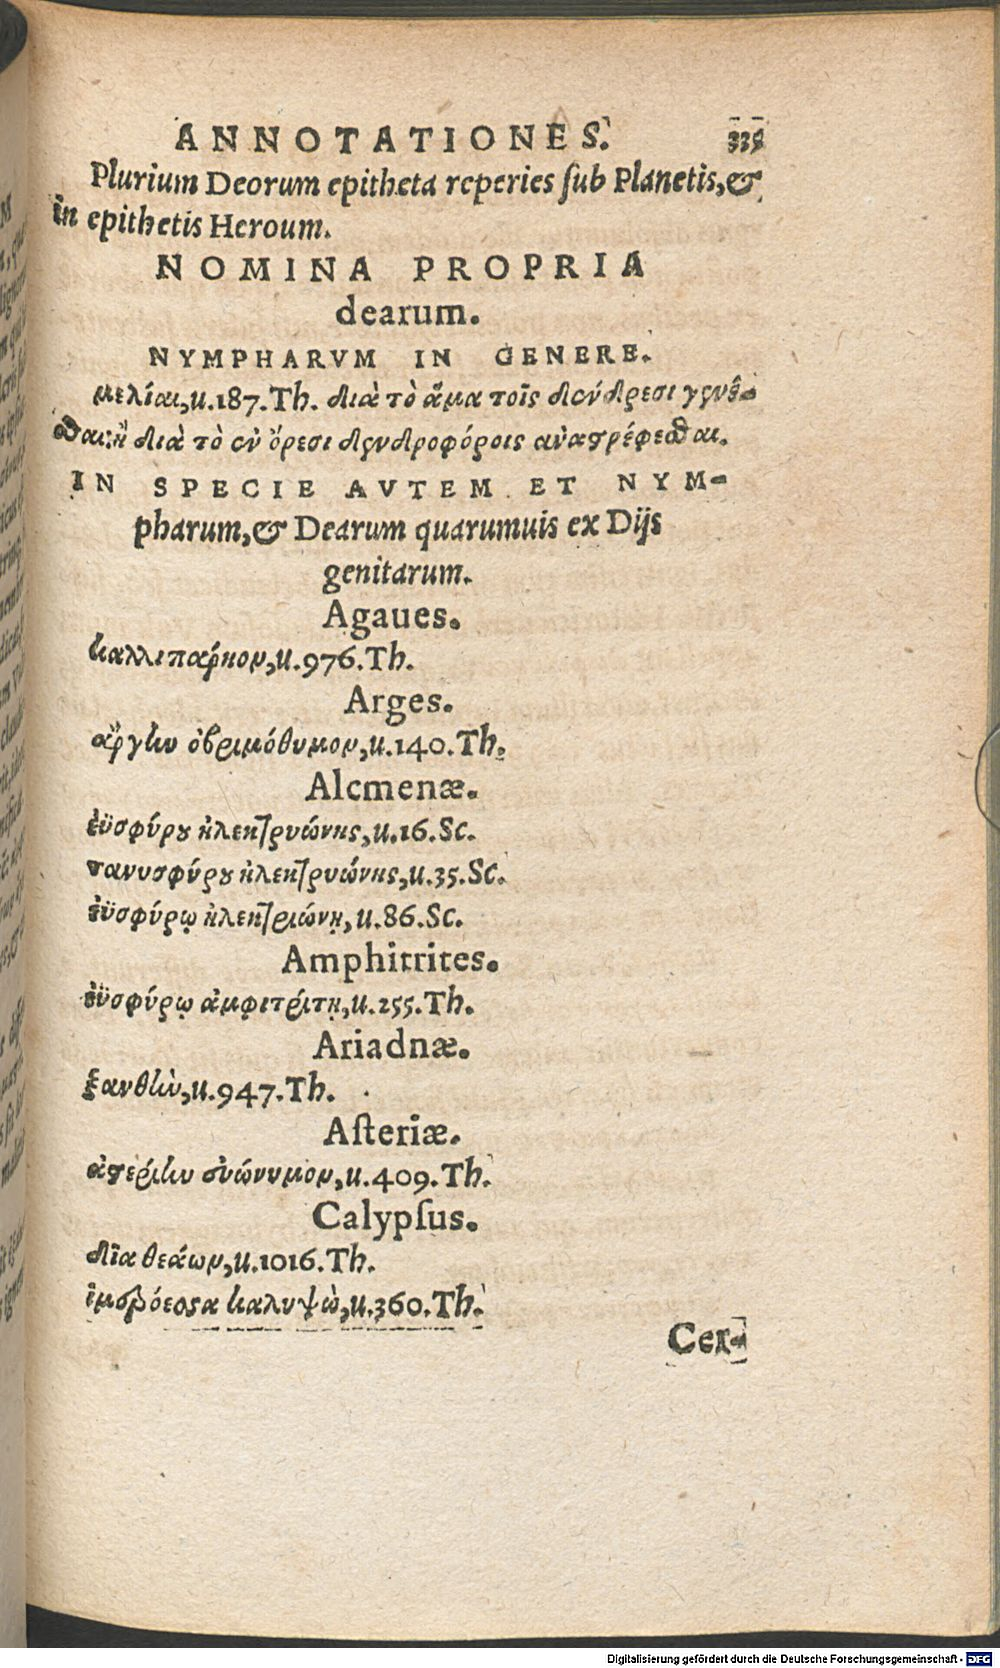 ANNOTATIONES. 335
Plurium Deorum epitheta reperies ſub Planetis, &
in epithetis Heroum.
NOMINA PROPRIA
dearum.
NYMPHARVM IN GENERE.
μελίαι, u.187.Th. διὰ τὸ ἅμα τοῖς δένδρεσι γενέ-
σθαι: ἢ διὰ τὸ ἐν ὄρεσι δενδροφόροις ἀναστρέφεσθαι.
IN SPECIE AVTEM ET NYM-
pharum, & Dearum quarumuis ex Dijs
genitarum.
Agaues.
καλλιπάρῃον, u.976.Th.
Arges.
ἄργην ὀβριμόθυμον, u.140.Th.
Alcmenæ.
ἐϋσφύρου ἠλεκτρυώνης, u.16.Sc.
τανυσφύρου ἠλεκτρυώνης, u.35.Sc.
ἐϋσφύρῳ ἠλεκτριώνῃ, u.86.Sc.
Amphitrites.
ἐϋσφύρῳ ἀμφιτρίτῃ, u.255.Th.
Ariadnæ.
ξανθὴν, u.947.Th.
Aſteriæ.
ἀστερίην εὐώνυμον, u.409.Th.
Calypſus.
δῖα θεάων, u.1016.Th.
ἱμερόεσσα καλυψὼ, u.360.Th.
Cer-
Digitalisierung gefördert durch die Deutsche Forschungsgemeinschaft - DFG